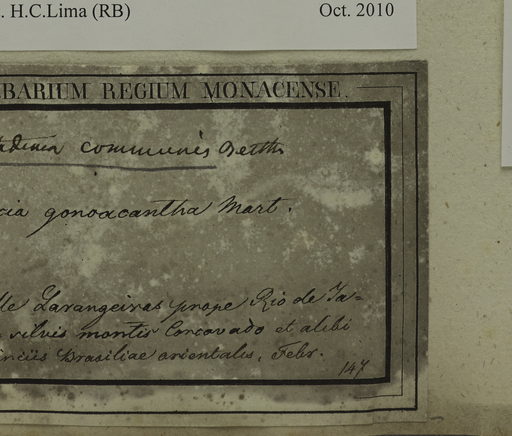 . H.C.Lima (RB) Oct. 2010
BARIUM REGIUM MONACENSE.
communis Benth
cia gonoacantha Mart.
lle Larangeiras prope Rio de Ja-
silvis montis Corcovado et alibi
inciis Brasiliae orientalis, Febr.
147